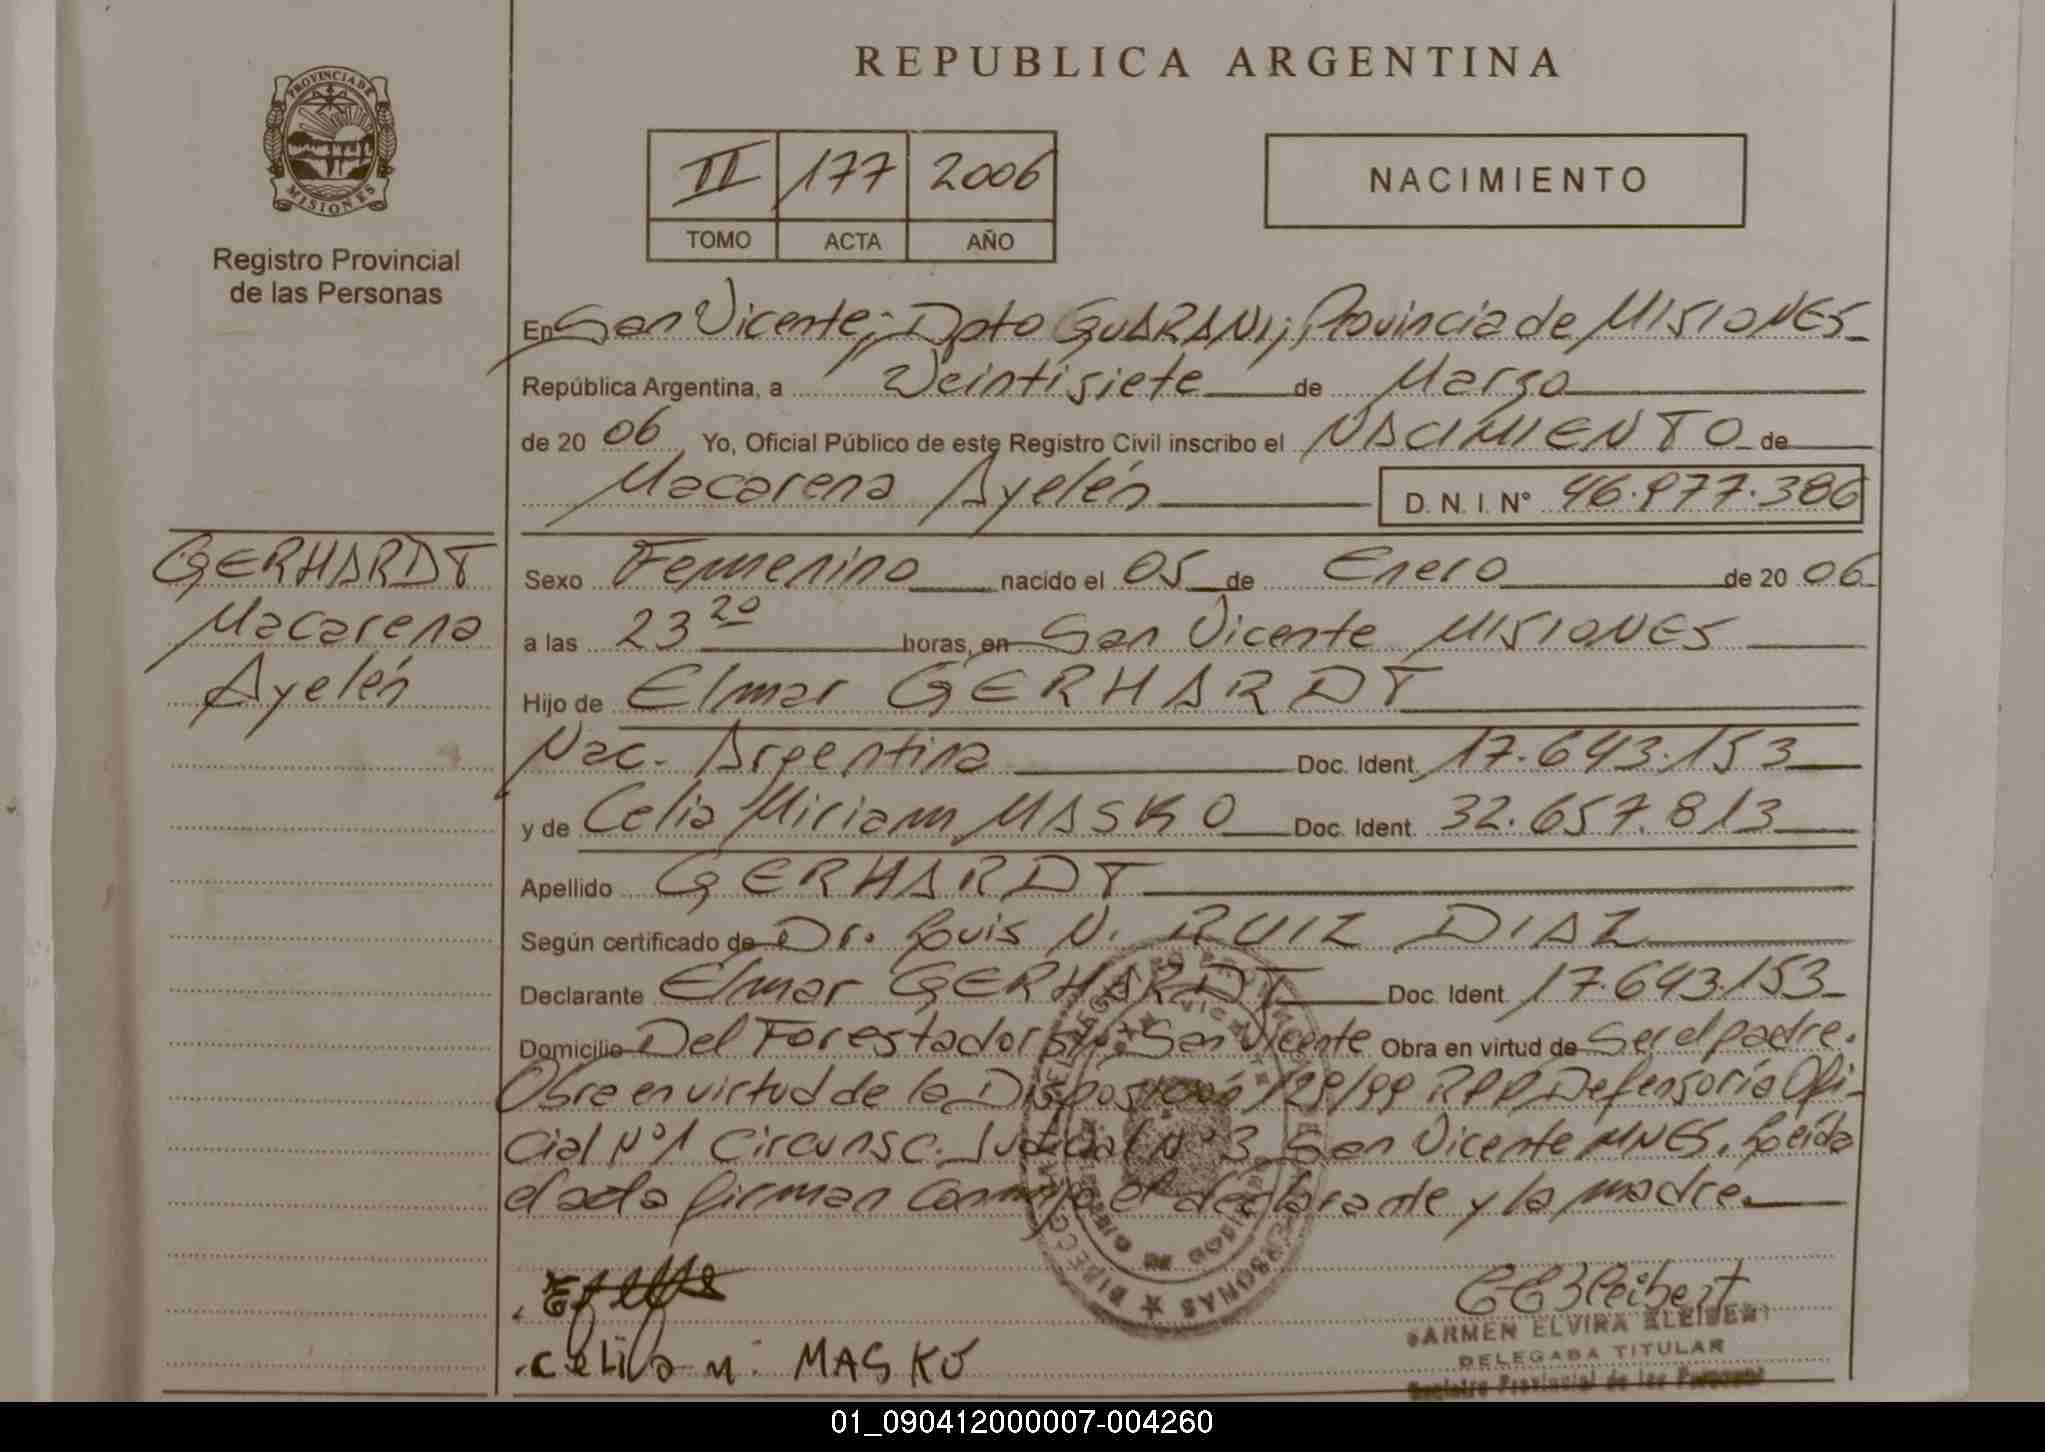 REPUBLICA ARGENTINA
PROVINCIA DE
MISIONES
Registro Provincial
de las Personas
II 177 2006
TOMO ACTA AÑO
NACIMIENTO
En San Vicente; Dpto GUARANI; Provincia de MISIONES
República Argentina, a Veintisiete de Marzo
de 20 06 Yo, Oficial Público de este Registro Civil inscribo el NACIMIENTO de
Macarena Ayelén D. N. I. N° 46.977.386
GERHARDT
Macarena
Ayelén
Sexo Femenino nacido el 05 de Enero de 20 06
a las 23 20 horas, en San Vicente MISIONES
Hijo de Elmar GERHARDT
Nac. Argentina Doc. Ident. 17.643.153
y de Celia Miriam MASKO Doc. Ident. 32.657.813
Apellido GERHARDT
Según certificado de Dr. Luis N. RUIZ DIAZ
Declarante Elmar GERHARDT Doc. Ident. 17.643.153
Domicilio Del Forestador s/n. San Vicente Obra en virtud de Ser el padre.
Obra en virtud de la Disposición 129/99 RPP Defensoría Ofi-
cial N°1 Circunsc. Judicial N°3 San Vicente MNES. Leída
el acta firman conmigo el declarante y la madre.
Celia M. MASKO
CARMEN ELVIRA KLEIBERT
DELEGADA TITULAR
Registro Provincial de las Personas
01_090412000007-004260